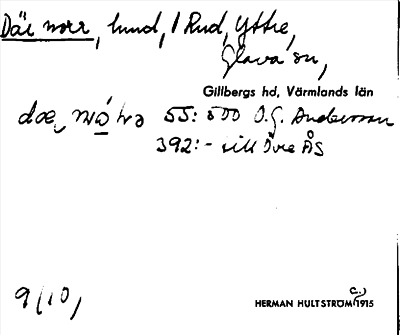 Där norr, lund, 1 Rud, Yttre,
Glava sn,
Gillbergs hd, Värmlands län
dæ, nọ̀ṛə 55: 500 O.G. Andersson
392:- till Övre ÅS
9/10,
c.)
HERMAN HULTSTRÖM 1915